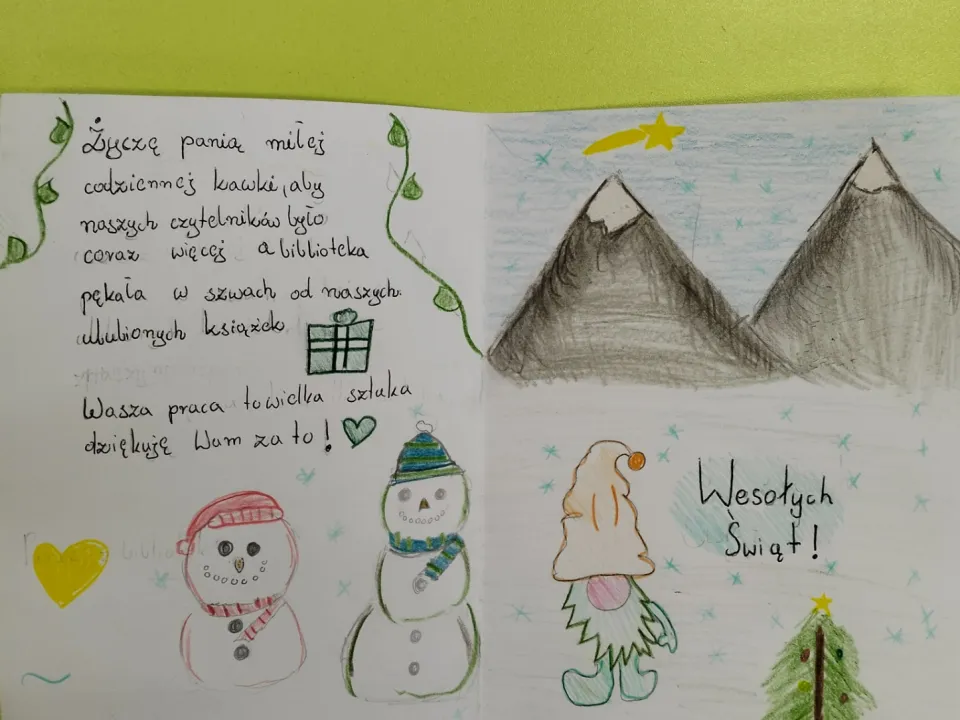 Życzę panią miłej
codziennej kawki, aby
naszych czytelników było
coraz więcej a biblioteka
pękała w szwach od naszych
ulubionych książek
Wasza praca to wielka sztuka
dziękuję Wam za to!
Wesołych
Świąt!